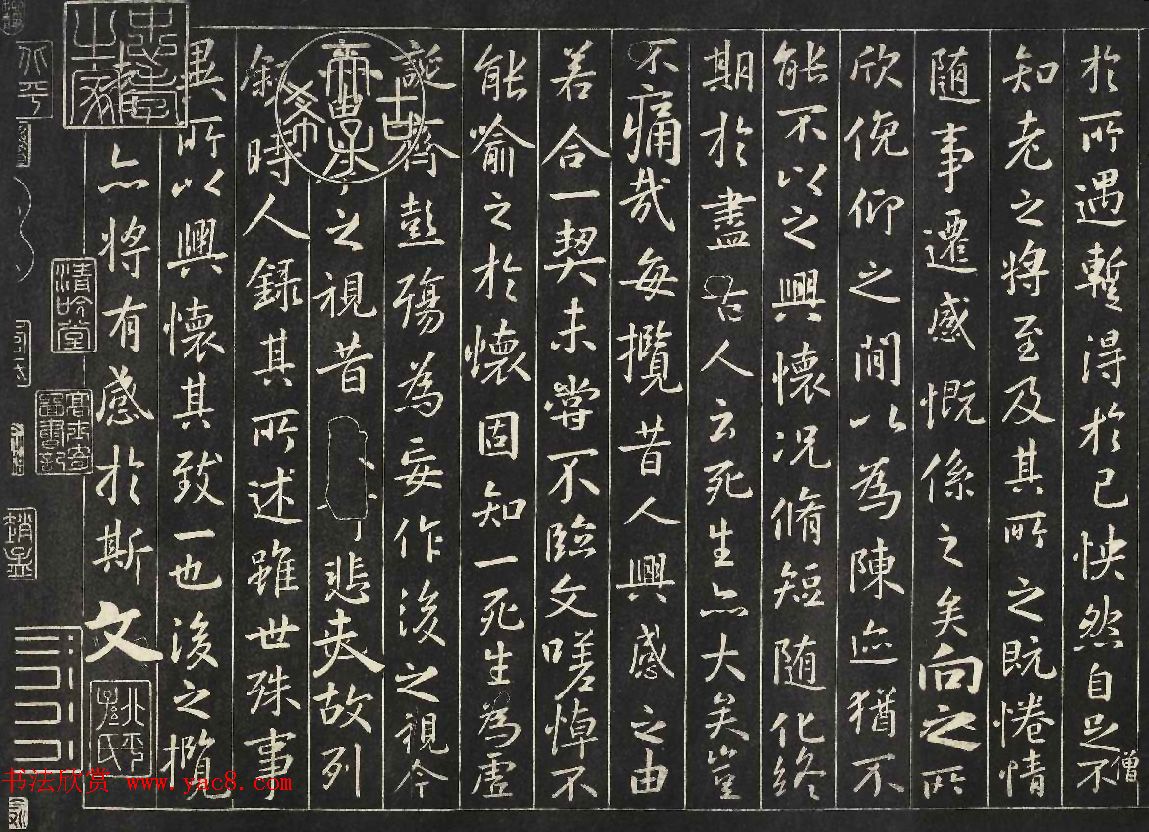 於所遇暫得於己怏然自足不
僧
知老之將至及其所之既惓情
隨事遷感慨係之矣向之所
欣俛仰之間以為陳迹猶不
能不以之興懷況脩短隨化終
期於盡古人云死生亦大矣豈
不痛哉每攬昔人興感之由
若合一契未嘗不臨文嗟悼不
能喻之於懷固知一死生為虛
誕齊彭殤為妄作後之視今
亦由今之視昔悲夫故列
敘時人錄其所述雖世殊事
異所以興懷其致一也後之攬
者亦將有感於斯文
忠孝之家
希古
清吟堂
北平孫氏
书法欣赏 www.yac8.com